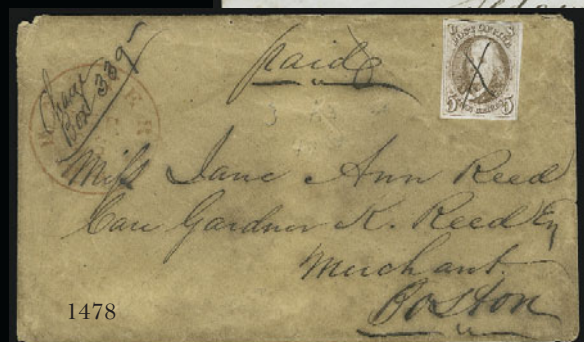 Charge
Box 339
paid
POST OFFICE
5 5
Miss Jane Ann Reed
Care Gardner K. Reed Esq
Merchant
Boston
1478